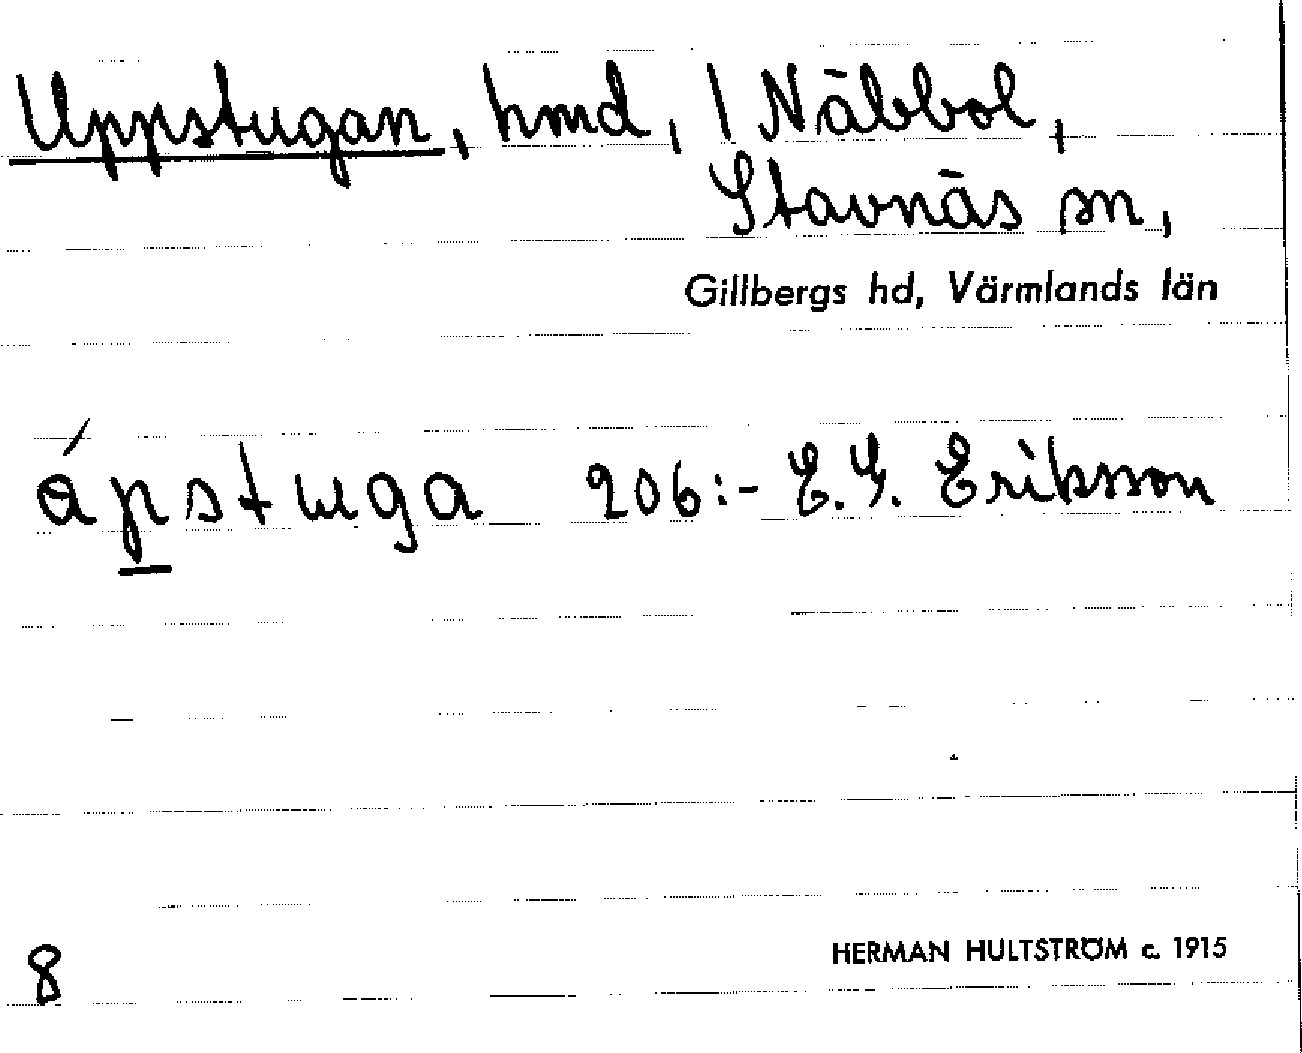 Uppstugan, hmd, / Näbbol,
Stavnäs sn,
Gillbergs hd, Värmlands län
ápstuga 206:- E. G. Eriksson
8
HERMAN HULTSTRÖM c. 1915